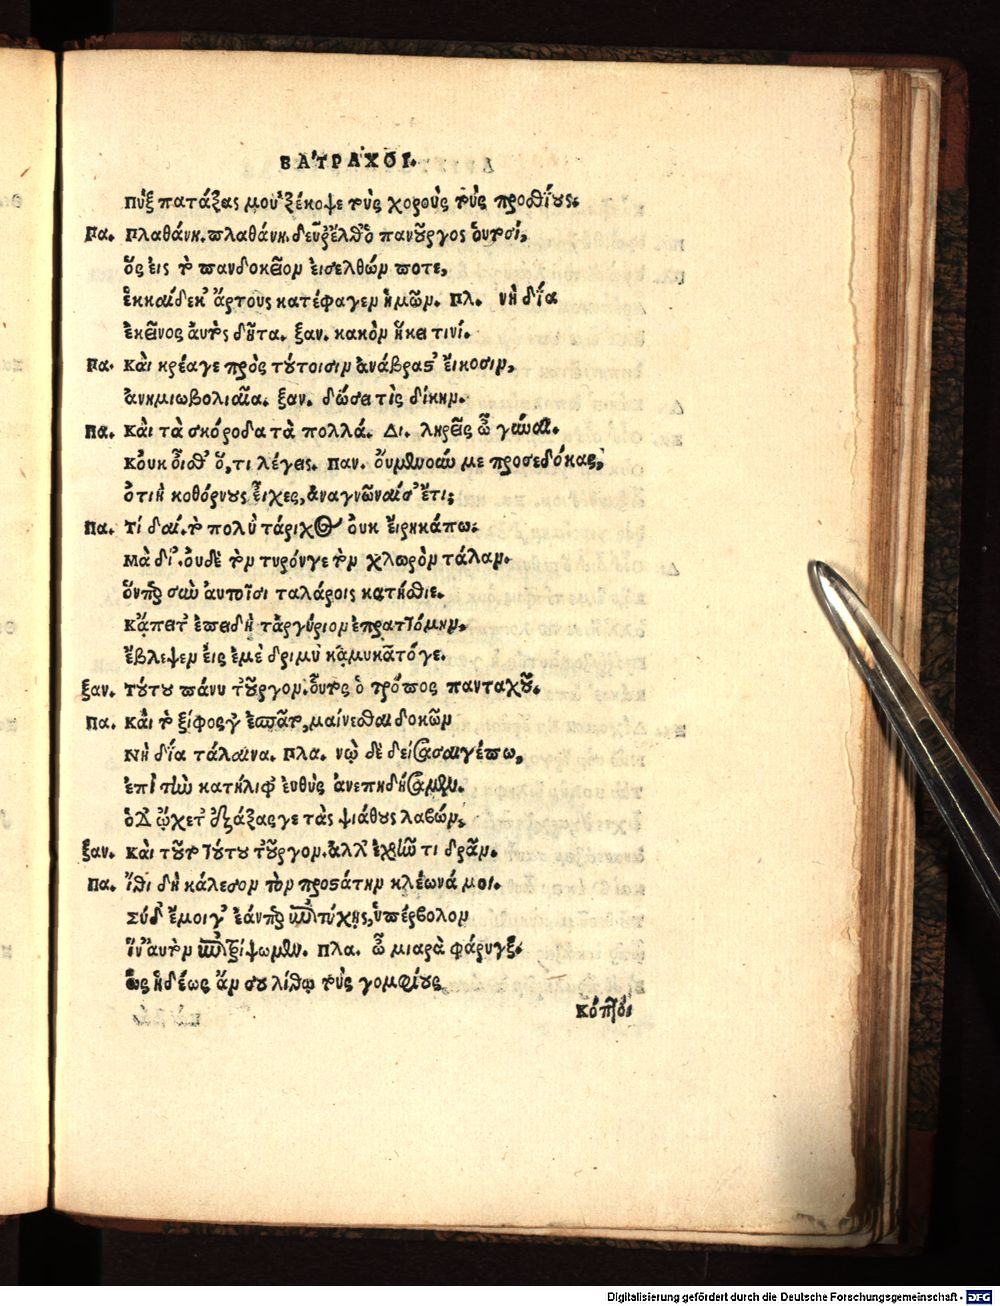 ΒΑΤΡΑΧΟΙ.
Πὺξ πατάξας μοὐξέκοψε τοὺς χοροὺς τοὺς προσθίους.
Πα. Πλαθάνη. πλαθάνη. δεῦρ' ἔλθ' ὁ πανοῦργος οὑτοσί,
ὃς εἰς τὸ πανδοκεῖον εἰσελθών ποτε,
ἑκκαίδεκ' ἄρτους κατέφαγεν ἡμῶν. Πλ. νὴ δία
ἐκεῖνος αὐτὸς δῆτα. ξαν. κακὸν ἥκει τινί.
Πα. Καὶ κρέαγε πρὸς τούτοισιν ἀνάβραστ' εἴκοσιν,
ἀνημιωβολιαῖα. ξαν. δώσει τὶς δίκην.
Πα. Καὶ τὰ σκόροδα τὰ πολλά. Δι. ληρεῖς ὦ γύναι.
Κοὐκ οἶσθ' ὅ, τι λέγεις. Παν. οὐμενοῦν με προσεδόκας,
ὁτιὴ κοθόρνους εἶχες, ἀναγνῶναί σ' ἔτι;
Πα. Τί δαί. τὸ πολὺ τάριχος οὐκ εἴρηκάπω.
Μὰ δί'. οὐδὲ τὸν τυρόνγε τὸν χλωρὸν τάλαν.
ὅνπερ σὺν αὐτοῖσι ταλάροις κατήσθιε.
Κἄπειτ' ἐπειδὴ τἀργύριον ἐπραττόμην,
ἔβλεψεν εἰς ἐμὲ δριμὺ κἀμυκᾶτόγε.
ξαν. Τούτου πάνυ τοὖργον. οὗτος ὁ τρόπος πανταχοῦ.
Πα. Καὶ τὸ ξίφος γ' ἐσπᾶτο, μαίνεσθαι δοκῶν
Νὴ δία τάλαινα. Πλα. νῲ δὲ δεισάσαιγέπω,
ἐπὶ τὴν κατήλιφ' εὐθὺς ἀνεπηδήσαμεν.
ὁ δ' ᾤχετ' ἐξάξαςγε τὰς ψιάθους λαβών.
ξαν. Καὶ τοῦτο τούτου τοὖργον. ἀλλ' ἐχρῆν τι δρᾶν.
Πα. Ἴθι δὴ κάλεσον τὸν προστάτην κλέωνά μοι.
Σύ δ' ἔμοιγ' ἐάνπερ ἐπιτύχῃς, ὑπέρβολον
ἵν' αὐτὸν ἐπιτρίψωμεν. Πλα. ὦ μιαρὰ φάρυγξ.
ὡς ἡδέως ἄν σου λίθῳ τοὺς γομφίους
Κόπτοι
Digitalisierung gefördert durch die Deutsche Forschungsgemeinschaft - DFG